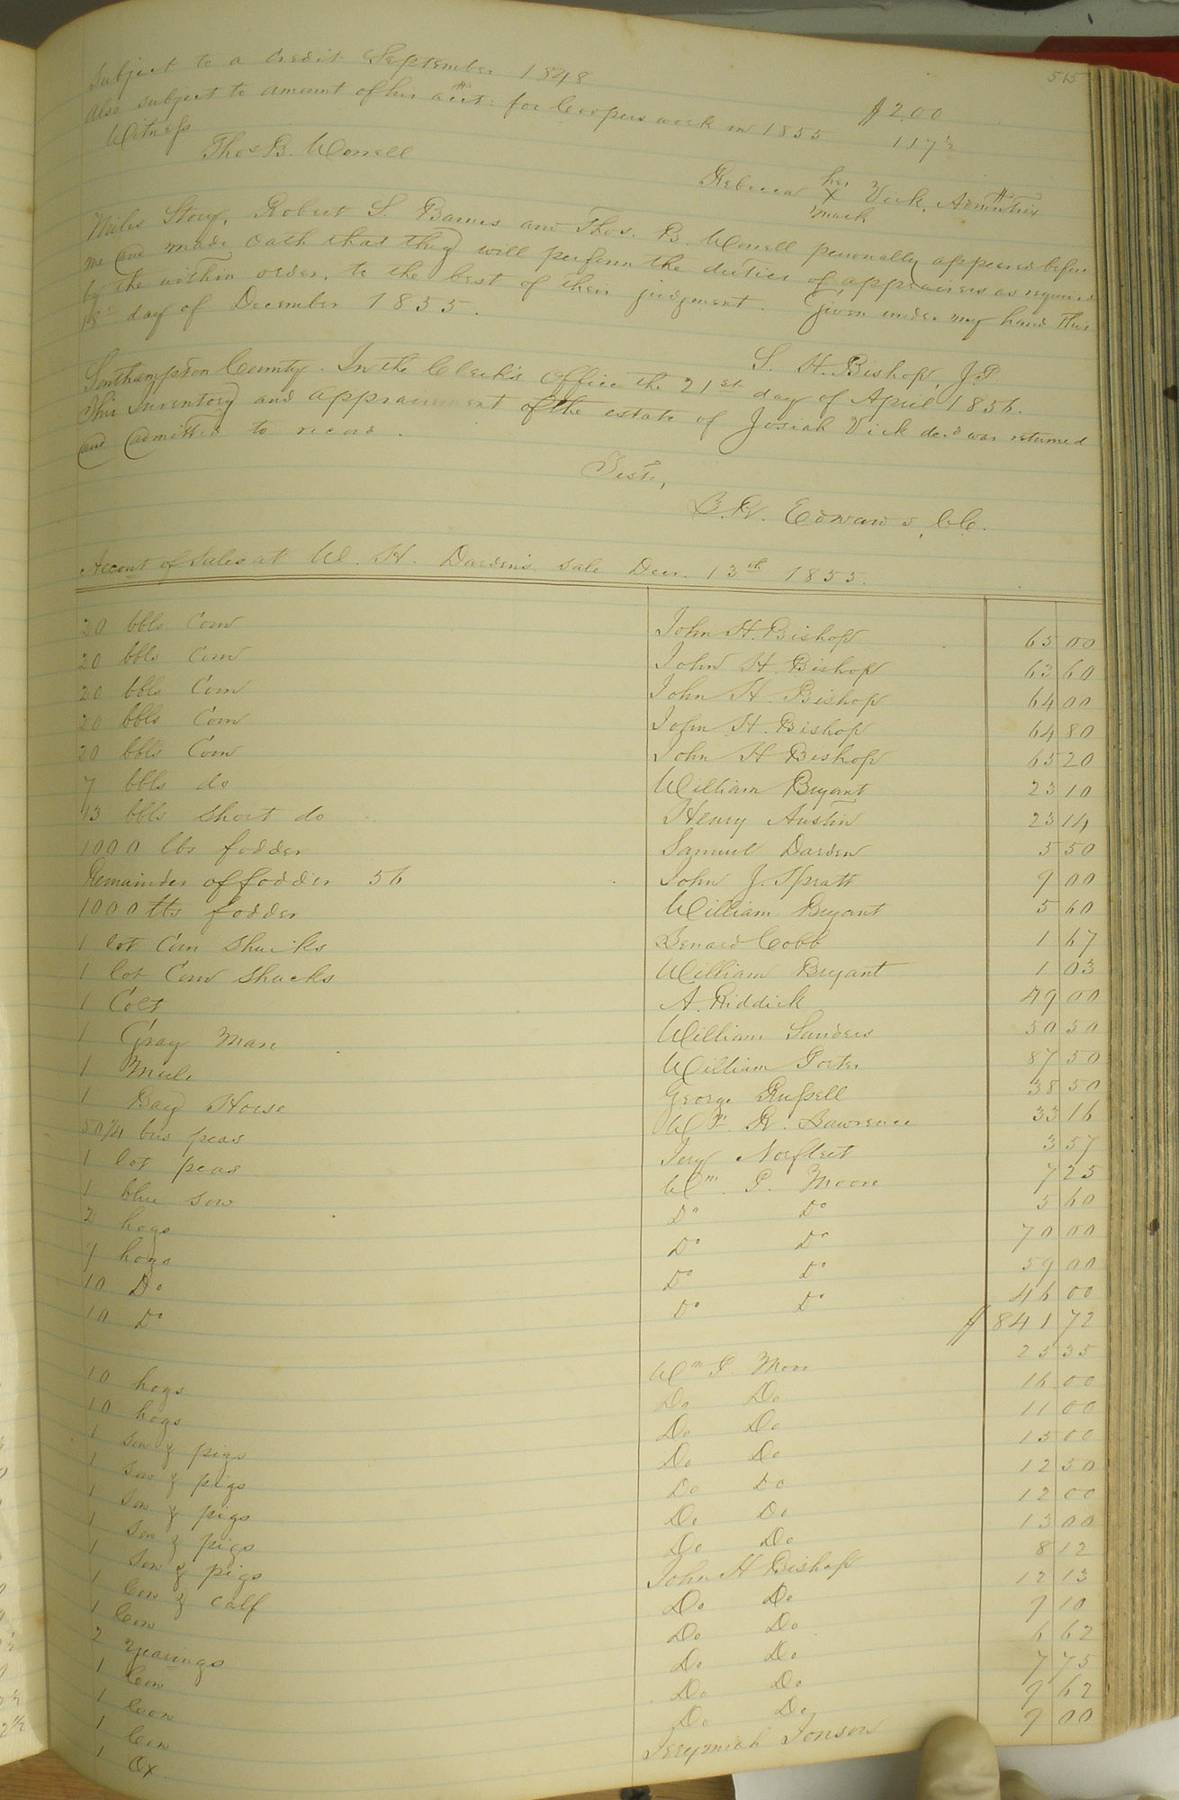 515
Subject to a credit September 1848 $2.00
Also subject to amount of his acct: for Coopers work in 1855 1.17½
Witness
Thos B. Worrell
Rebecca her X mark Vick, Admintrix
Miles Story, Robert S. Barnes and Thos. B. Worrell personally appeared before
me and made oath that they will perform the duties of appraisers as required
by the within order, to the best of their judgment. Given under my hand this
18th day of December 1855.
S. H. Bishop, J.P
Southampton County. In the Clerk's Office the 21st day of April 1856.
This inventory and appraisement of the estate of Josiah Vick decd was returned
and admitted to record.
Teste,
L. R. Edwards, C.C.
Account of Sales at W. H. Darden's sale Decr. 13th 1855.
20 bbls Corn John H. Bishop 65 00
20 bbls Corn John H. Bishop 63 60
20 bbls Corn John H. Bishop 64 00
20 bbls Corn John H. Bishop 64 80
20 bbls Corn John H Bishop 65 20
7 bbls do William Bryant 23 10
13 bbls short do Henry Austin 23 14
1000 lbs fodder Samuel Darden 5 50
Remainder of fodder 56 John J. Spratt 9 00
1000 lbs fodder William Bryant 5 60
1 lot Corn Shucks Benard Cobb 1 67
1 lot Corn Shucks William Bryant 1 03
1 Colt A. Riddick 49 00
1 Gray Mare William Sanders 50 50
1 Mule William Porter 87 50
1 Bay Horse George Russell 38 50
50¼ bus peas Wm. R. Lawrence 33 16
1 lot peas Jery Norfleet 3 57
1 blue sow Wm. P. Moore 7 25
2 hogs Do Do 5 60
9 hogs Do Do 70 00
10 Do Do Do 59 00
10 Do Do Do 46 00
$841 72
10 hogs Wm P. Moore 25 35
10 hogs Do Do 16 00
1 Sow & pigs Do Do 11 00
1 Sow & pigs Do Do 15 00
1 Sow & pigs Do Do 12 50
1 Sow & pigs Do Do 12 00
1 Sow & pigs Do Do 13 00
1 Cow & calf John H Bishop 8 12
1 Cow Do Do 12 13
2 yearings Do Do 9 10
1 Cow Do Do 6 62
1 Cow Do Do 7 75
1 Cow Do Do 9 62
1 Ox Jerymiah Jonson 9 00